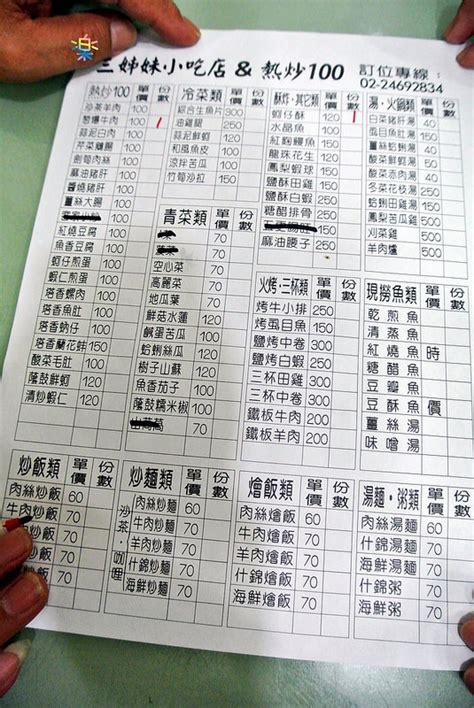 樂
三姊妹小吃店 & 熱炒100 訂位專線：
02-24692834
熱炒100 單價 份數
沙茶羊肉 100
蔥爆牛肉 100
蒜泥白肉 100
芹菜雞胗 100
劍筍肉絲 100
麻油豬肝 100
醬燒豬肝 100
薑絲大腸 100
100
紅燒豆腐 100
魚香豆腐 100
蚵仔煎蛋 100
蝦仁煎蛋 100
塔香螺肉 100
塔香魚肚 100
塔香蚋仔 100
塔香蘭花蚌 150
酸菜毛肚 100
蔭鼓鮮蚵 120
清炒蝦仁 120
冷菜類 單價 份數
綜合生魚片 300
油雞腿 200
蒜泥鮮蝦 200
和風魚皮 100
涼拌苦瓜 100
竹筍沙拉 100
青菜類 單價 份數
70
70
空心菜 70
高麗菜 70
地瓜葉 70
鮮菇水蓮 100
鹹蛋苦瓜 100
蛤蜊絲瓜 100
樹子山蘇 120
魚香茄子 100
蔭鼓糯米椒 100
100
酥炸、其它類 單價 份數
蚵仔酥 120
水晶魚 100
紅麴鰻魚 150
龍珠花生 120
鳳梨蝦球 150
鹽酥田雞 150
糖醋排骨 150
150
麻油腰子 150
火烤、三杯類 單價 份數
烤牛小排 250
烤虱目魚 150
鹽烤中卷 300
鹽烤白蝦 200
三杯田雞 300
三杯中卷 300
鐵板牛肉 200
鐵板羊肉 200
湯、火鍋類 單價 份數
白菜豬肝湯 70
虱目魚肚湯 70
薑絲蛤蜊湯 70
酸菜鴨血湯 70
酸菜赤肉湯 70
冬菜花枝湯 150
薑絲鮮蚵湯 150
鳳梨苦瓜雞 450
燒酒雞 500
羊肉爐 500
現撈魚類 單價 份數
乾煎魚
清蒸魚
紅燒魚 時
糖醋魚
豆瓣魚
豆酥魚 價
薑絲湯
味噌湯
炒飯類 單價 份數
肉絲炒飯 60
牛肉炒飯 70
羊肉炒飯 70
什錦炒飯 70
海鮮炒飯 70
炒麵類 單價 份數
沙茶、咖哩
肉絲炒麵 60
牛肉炒麵 70
羊肉炒麵 70
什錦炒麵 70
海鮮炒麵 70
燴飯類 單價 份數
肉絲燴飯 60
牛肉燴飯 70
羊肉燴飯 70
什錦燴飯 70
海鮮燴飯 70
湯麵、粥類 單價 份數
肉絲湯麵 60
什錦湯麵 70
海鮮湯麵 70
什錦粥 70
海鮮粥 70